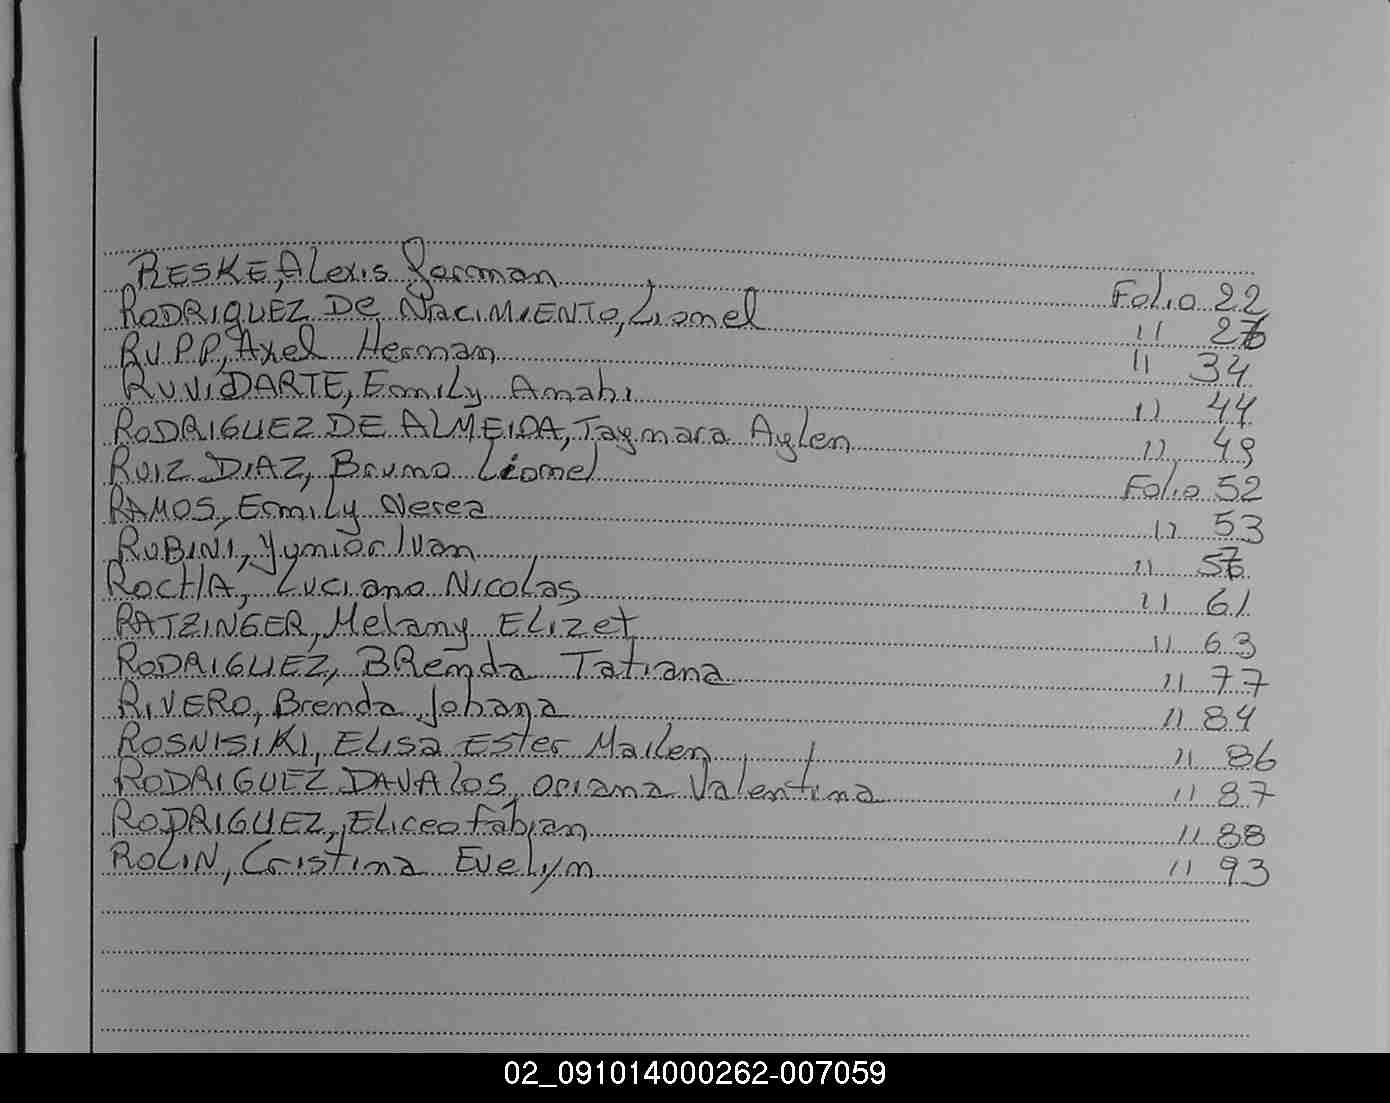 RESKE, Alexis German Folio 22
RODRIGUEZ De NaciMiENTo, Lionel 11 26
RUPP, Axel Herman 11 34
RUViDARTE, Emily Anahi 11 44
RODRIGUEZ DE ALMEIDA, Taymara Aylen 11 49
RUIZ DIAZ, Bruno Lionel Folio 52
RAMOS, Emily Nerea 11 53
RUBINI, Yunior Ivan 11 56
ROCHA, Luciano Nicolas 11 61
RATZINGER, Melany ELizet 11 63
RODRIGUEZ, BRenda Tatiana 11 77
RIVERO, Brenda Johana 11 84
ROSNISIKI, ELisa Ester Mailen 11 86
RODRIGUEZ DAVALOS, Oriana Valentina 11 87
RODRIGUEZ, Eliceo Fabian 11 88
ROLIN, Cristina Evelyn 11 93
02_091014000262-007059